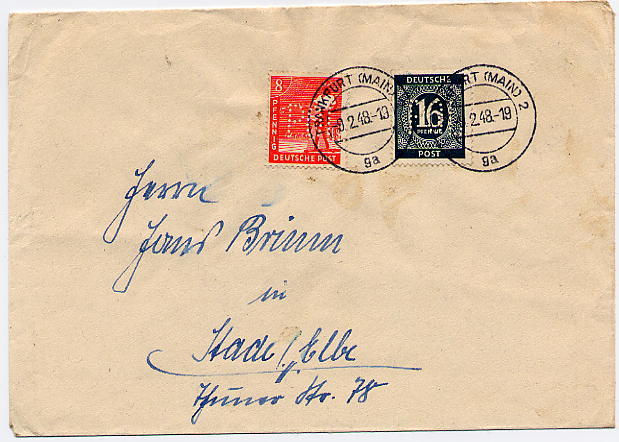 8
PFENNIG
DEUTSCHE POST
FRANKFURT (MAIN)
2.48.-19
ga
DEUTSCHE
16
PFENNIG
POST
FURT (MAIN) 2
2.48.-19
ga
Herrn
Hans Brimm
in
Stade/Elbe
Thuner Str. 78